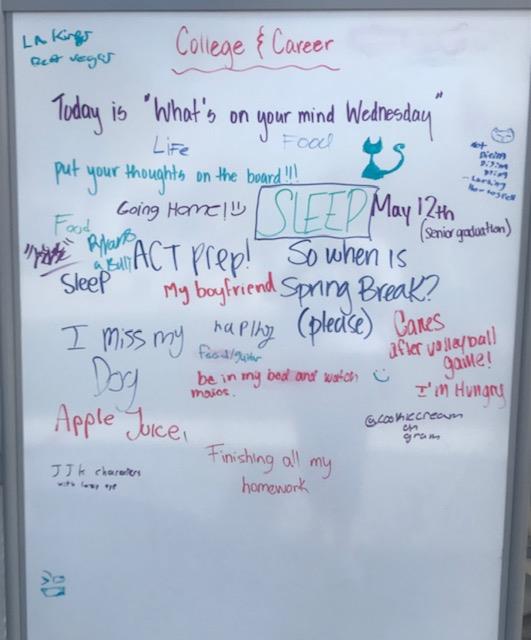 LA Kings
Beat vegas
College & Career
Today is "What's on your mind Wednesday"
Life
Food
put your thoughts on the board!!!
Going Home!
SLEEP
May 12th
(Senior graduation)
Food
ACT prep!
So when is
Spring Break?
(please)
Sleep
My boyfriend
I miss my
Dog
Food/guitar
be in my bed and watch
Canes
after volleyball
game!
I'm Hungry
Apple Juice,
@cookiecream
on
gram
JJK characters
with lazy eye
Finishing all my
homework